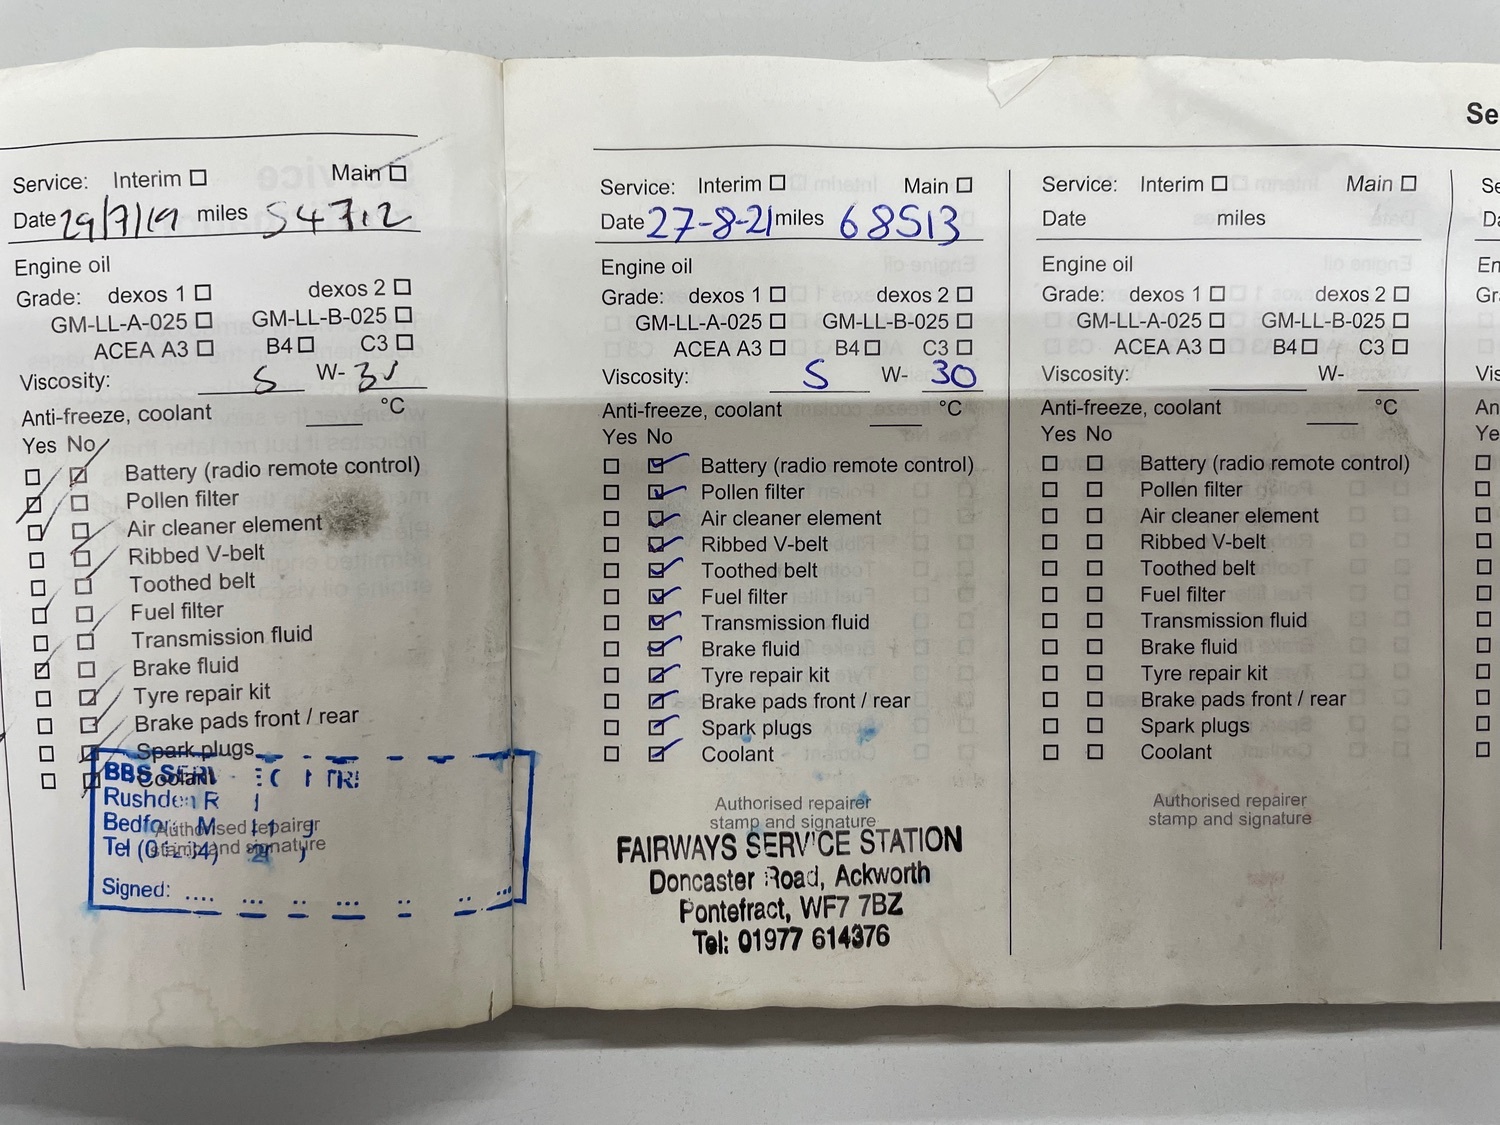 Service: Interim Main
Date 29/7/19 miles 54712
Engine oil
Grade: dexos 1 dexos 2
GM-LL-A-025 GM-LL-B-025
ACEA A3 B4 C3
Viscosity: 5 W- 30
Anti-freeze, coolant °C
Yes No
Battery (radio remote control)
Pollen filter
Air cleaner element
Ribbed V-belt
Toothed belt
Fuel filter
Transmission fluid
Brake fluid
Tyre repair kit
Brake pads front / rear
Spark plugs
Coolant
BBS
Rushden R
M
Authorised repairer
stamp and signature
Tel
Signed:
Service: Interim Main
Date 27-8-21 miles 68513
Engine oil
Grade: dexos 1 dexos 2
GM-LL-A-025 GM-LL-B-025
ACEA A3 B4 C3
Viscosity: 5 W- 30
Anti-freeze, coolant °C
Yes No
Battery (radio remote control)
Pollen filter
Air cleaner element
Ribbed V-belt
Toothed belt
Fuel filter
Transmission fluid
Brake fluid
Tyre repair kit
Brake pads front / rear
Spark plugs
Coolant
Authorised repairer
stamp and signature
FAIRWAYS SERVICE STATION
Doncaster Road, Ackworth
Pontefract, WF7 7BZ
Tel: 01977 614376
Service: Interim Main
Date miles
Engine oil
Grade: dexos 1 dexos 2
GM-LL-A-025 GM-LL-B-025
ACEA A3 B4 C3
Viscosity: W-
Anti-freeze, coolant °C
Yes No
Battery (radio remote control)
Pollen filter
Air cleaner element
Ribbed V-belt
Toothed belt
Fuel filter
Transmission fluid
Brake fluid
Tyre repair kit
Brake pads front / rear
Spark plugs
Coolant
Authorised repairer
stamp and signature